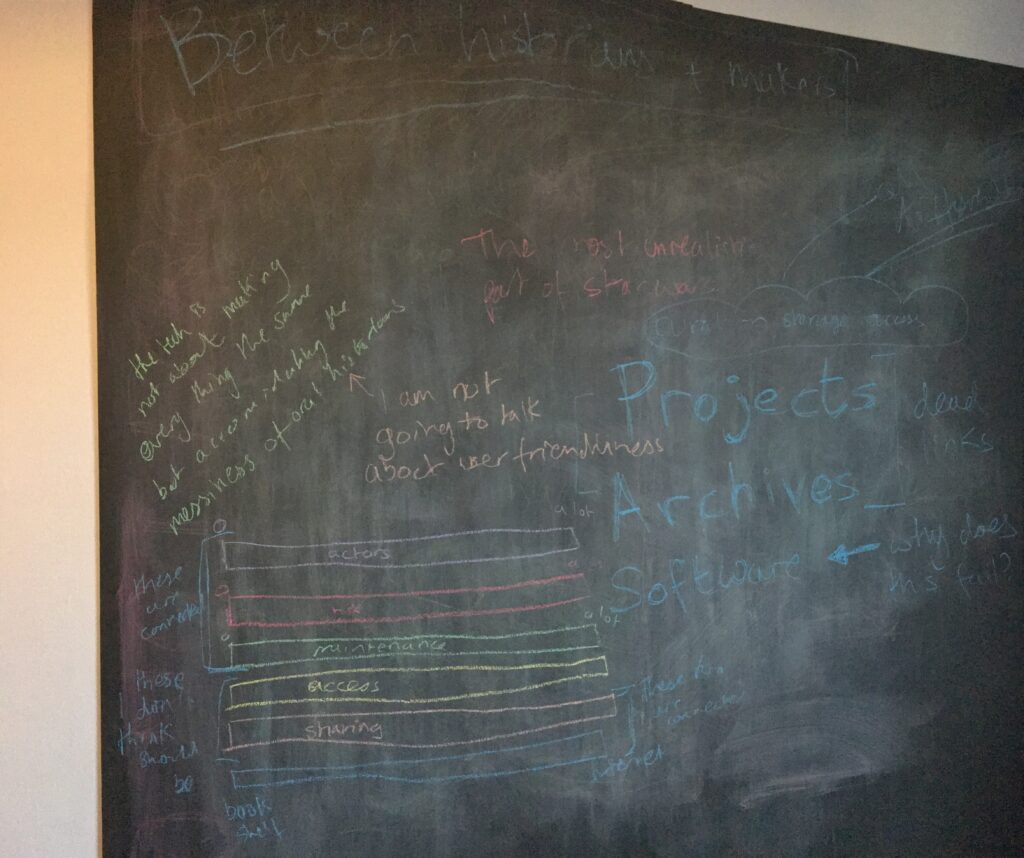 Between historians + makers
The most unrealistic
part of star wars
storage access
the tech is
not about making
every thing the same
but accomodating the
messiness of oral historians
I am not
going to talk
about user friendliness
Projects
dead
links
Archives
Software
why does
this fail?
a lot
actors
a lot
maintenance
access
sharing
these
are
connected
these
I don't
think
should
be
these two
are
connected
internet
book
shelf